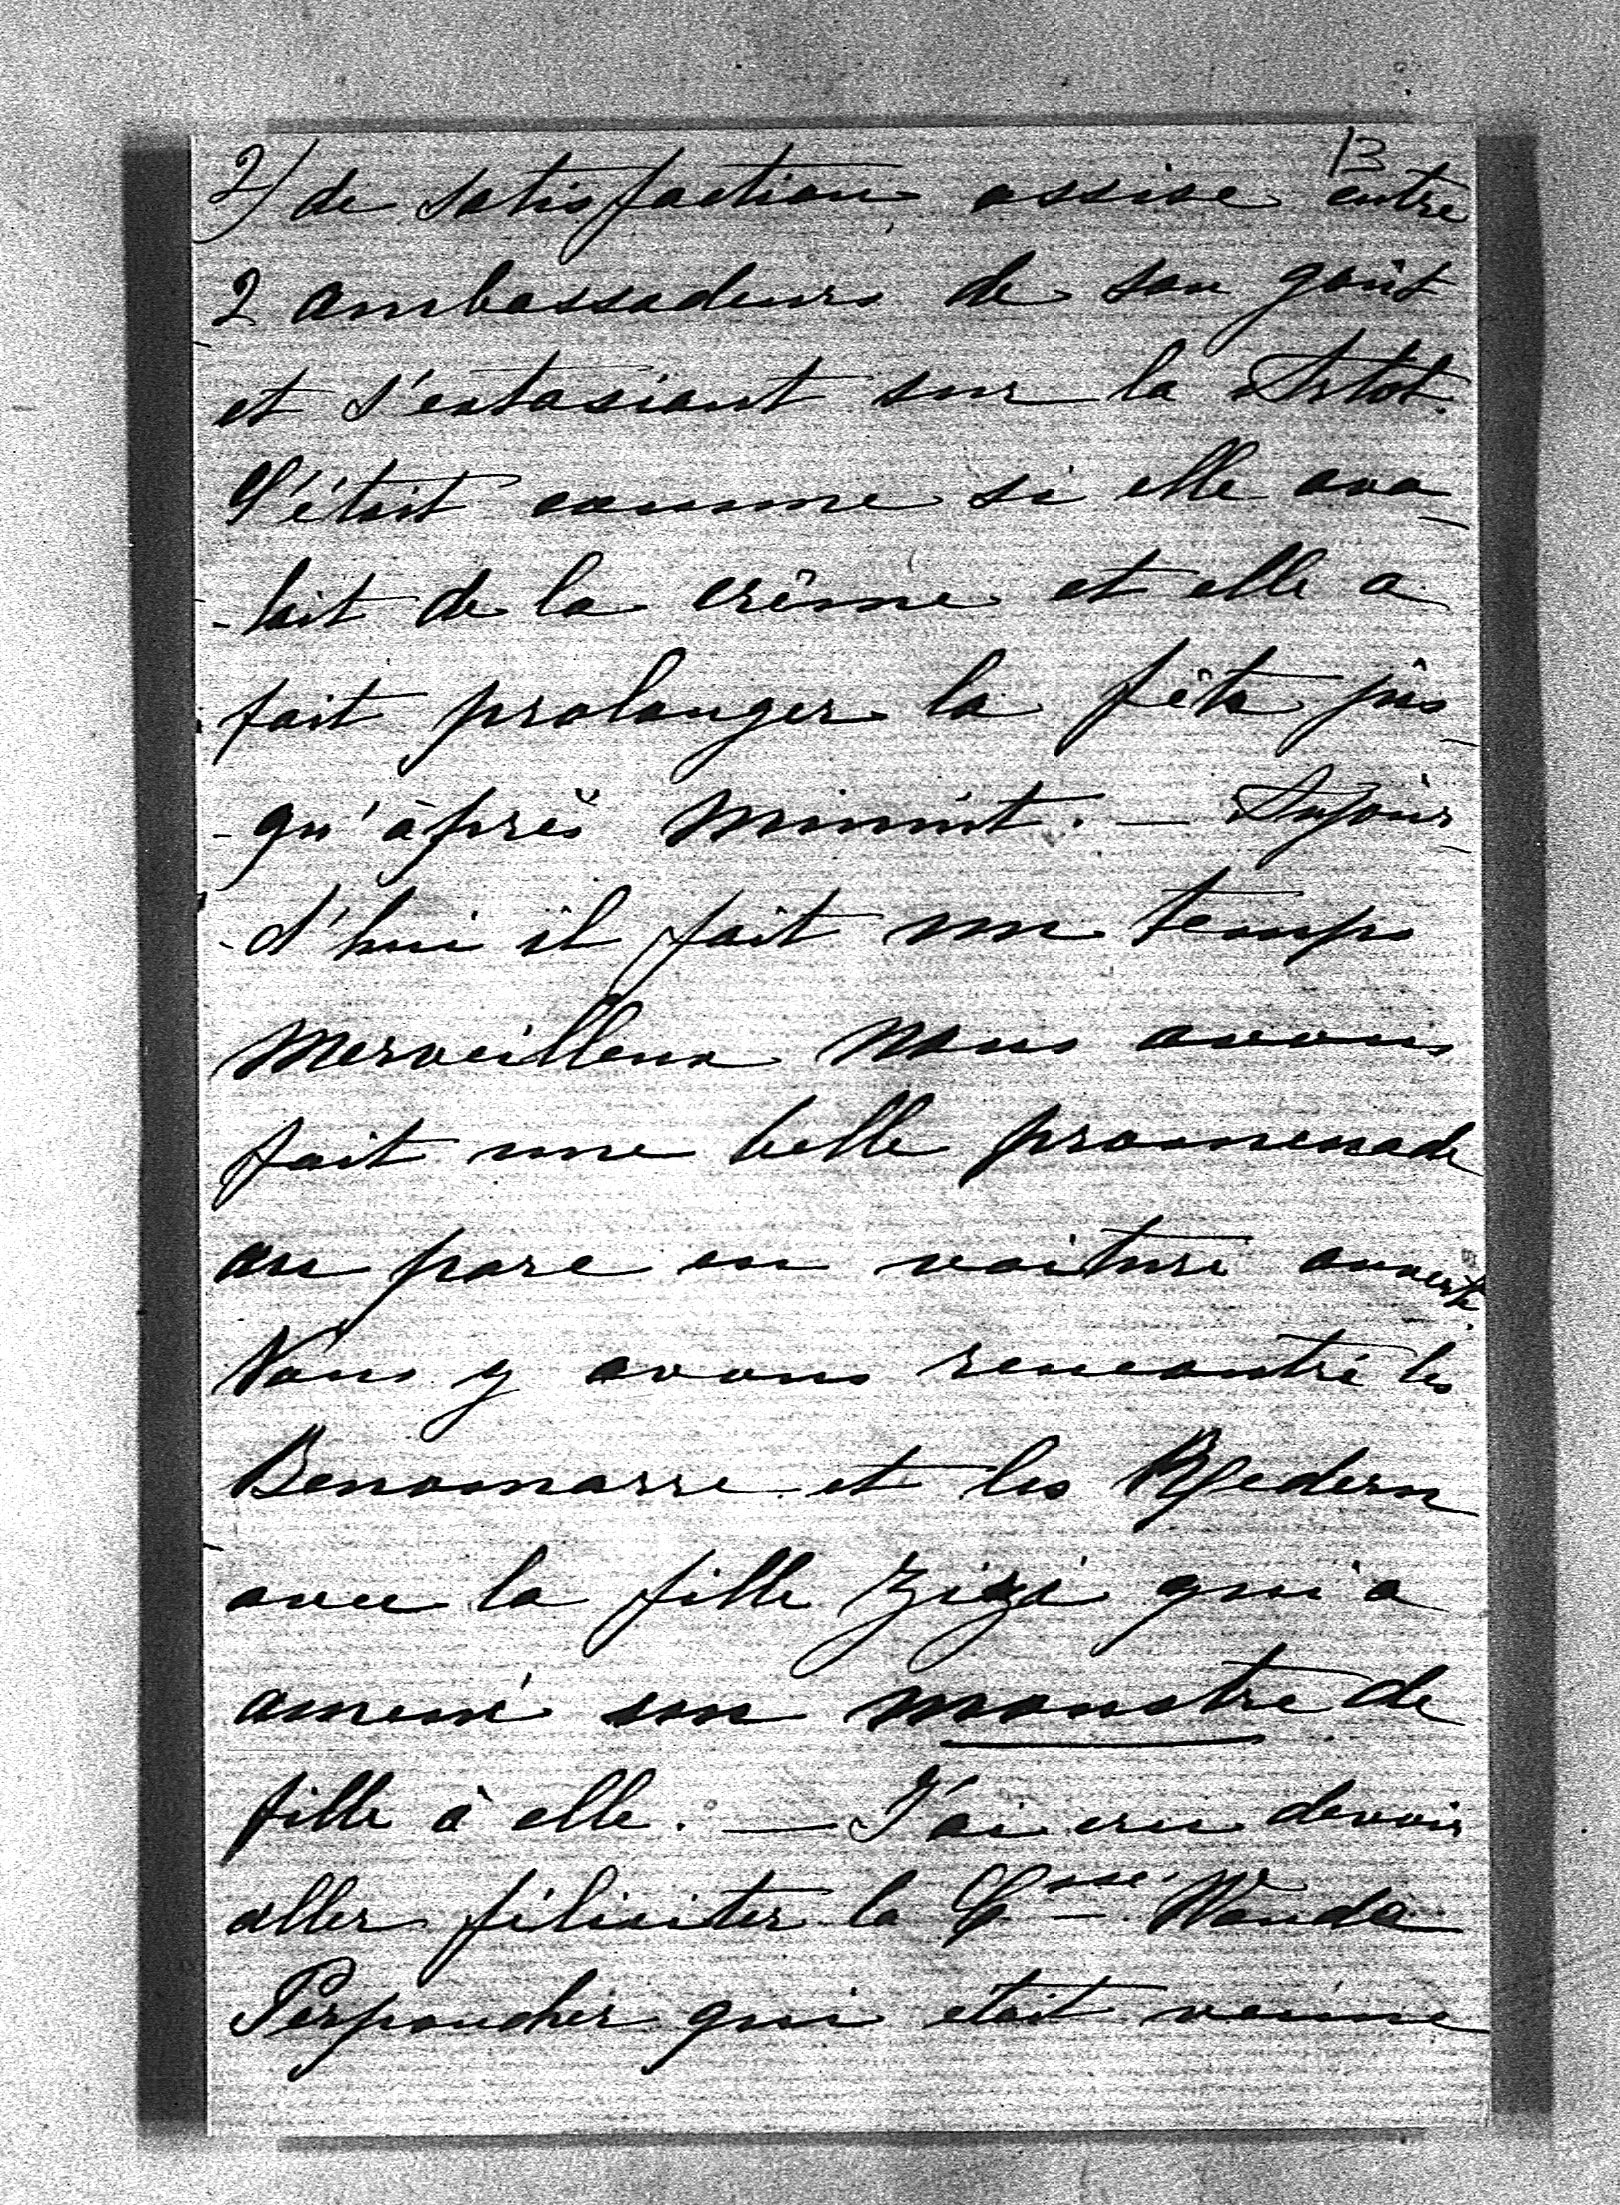 13
2) de satisfaction assise entre
2 ambassadeurs de son goût
et s'extasiant sur la Artot.
C'était comme si elle ava-
-lait de la crême et elle a
fait prolonger la fête jus-
-qu'àprès minuit. — Aujour-
-d'hui il fait un temps
merveilleux nous avons
fait une belle promenade
au parc en voiture ouverte.
Nous y avons rencontré les
Benomarre et les Redern
avec la fille Zizi qui a
amené son monstre de
fille à elle. — J'ai cru devoir
aller féliciter la Csse Wanda
Perponcher qui etait venue